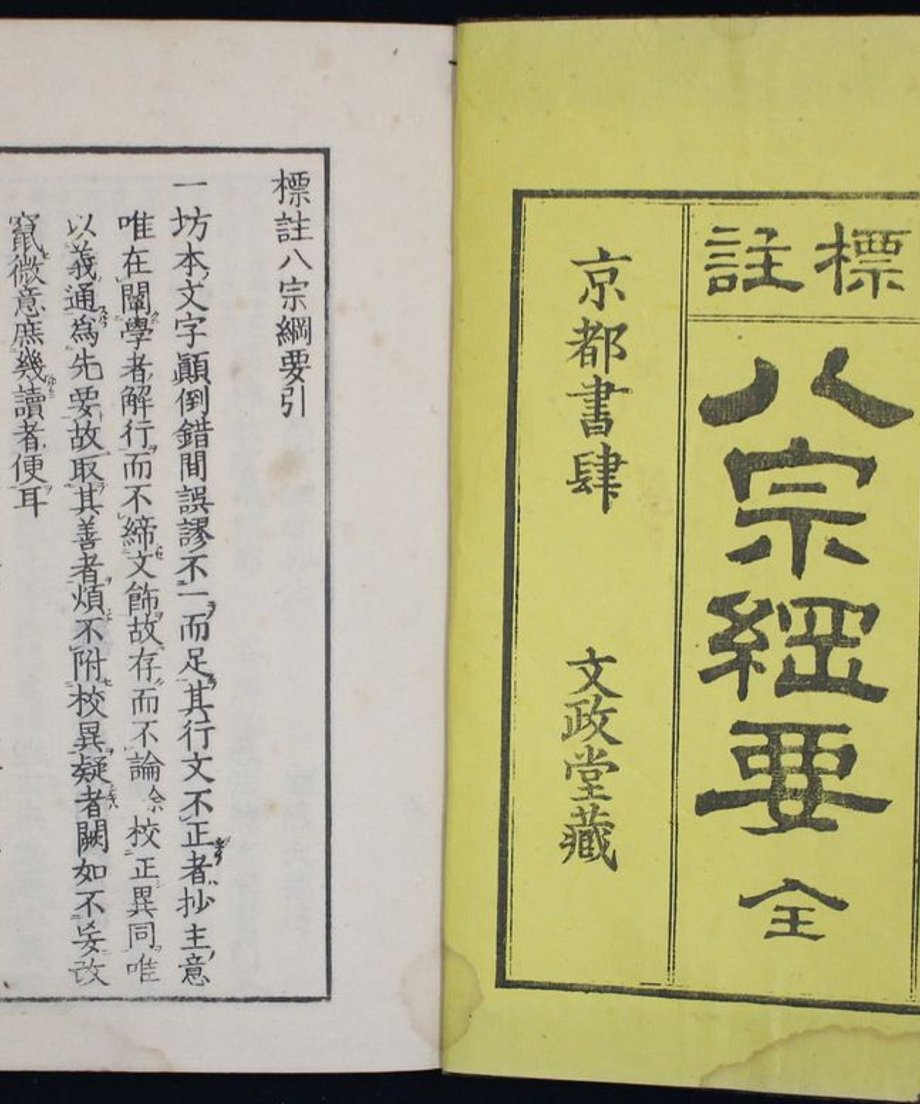 標註
八宗綱要 全
京都書肆 文政堂藏
標註八宗綱要引
一坊本文字顛倒錯間誤謬不一而足其行文不正者抄主意
唯在闡學者解行而不締文飾故存而不論 校正異同唯
以義通爲先要故取其善者煩不附校異疑者闕如不妄改
竄微意庶幾讀者便耳